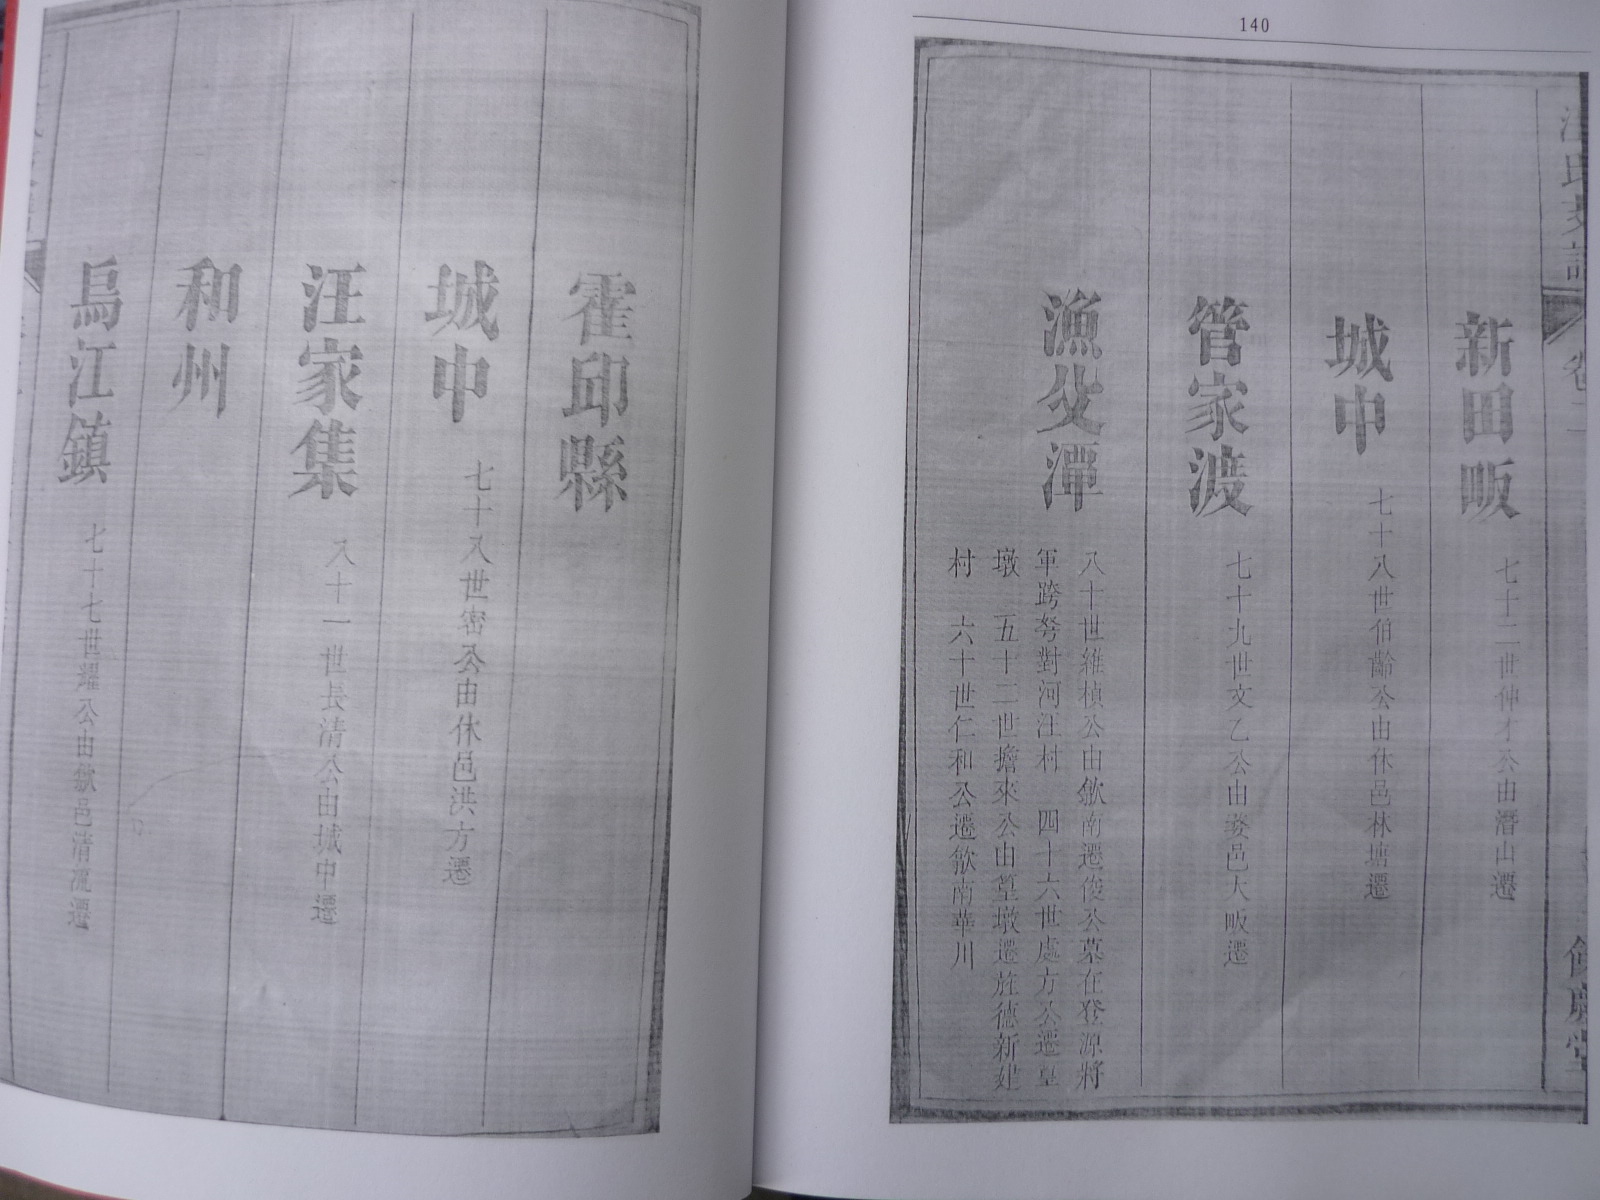 140
卷二
新田畈
七十二世仲才公由潛山遷
城中
七十八世伯齡公由休邑林塘遷
管家渡
七十九世文乙公由婺邑大畈遷
漁父潭
八十世維楨公由歙南遷俊公墓在登源將
軍跨弩對河汪村 四十六世處方公遷篁
墩 五十二世擔來公由篁墩遷旌德新建
村 六十世仁和公遷歙南華川
霍邱縣
城中
七十八世密公由休邑洪方遷
汪家集
八十一世長清公由城中遷
和州
烏江鎮
七十七世耀公由歙邑清流遷